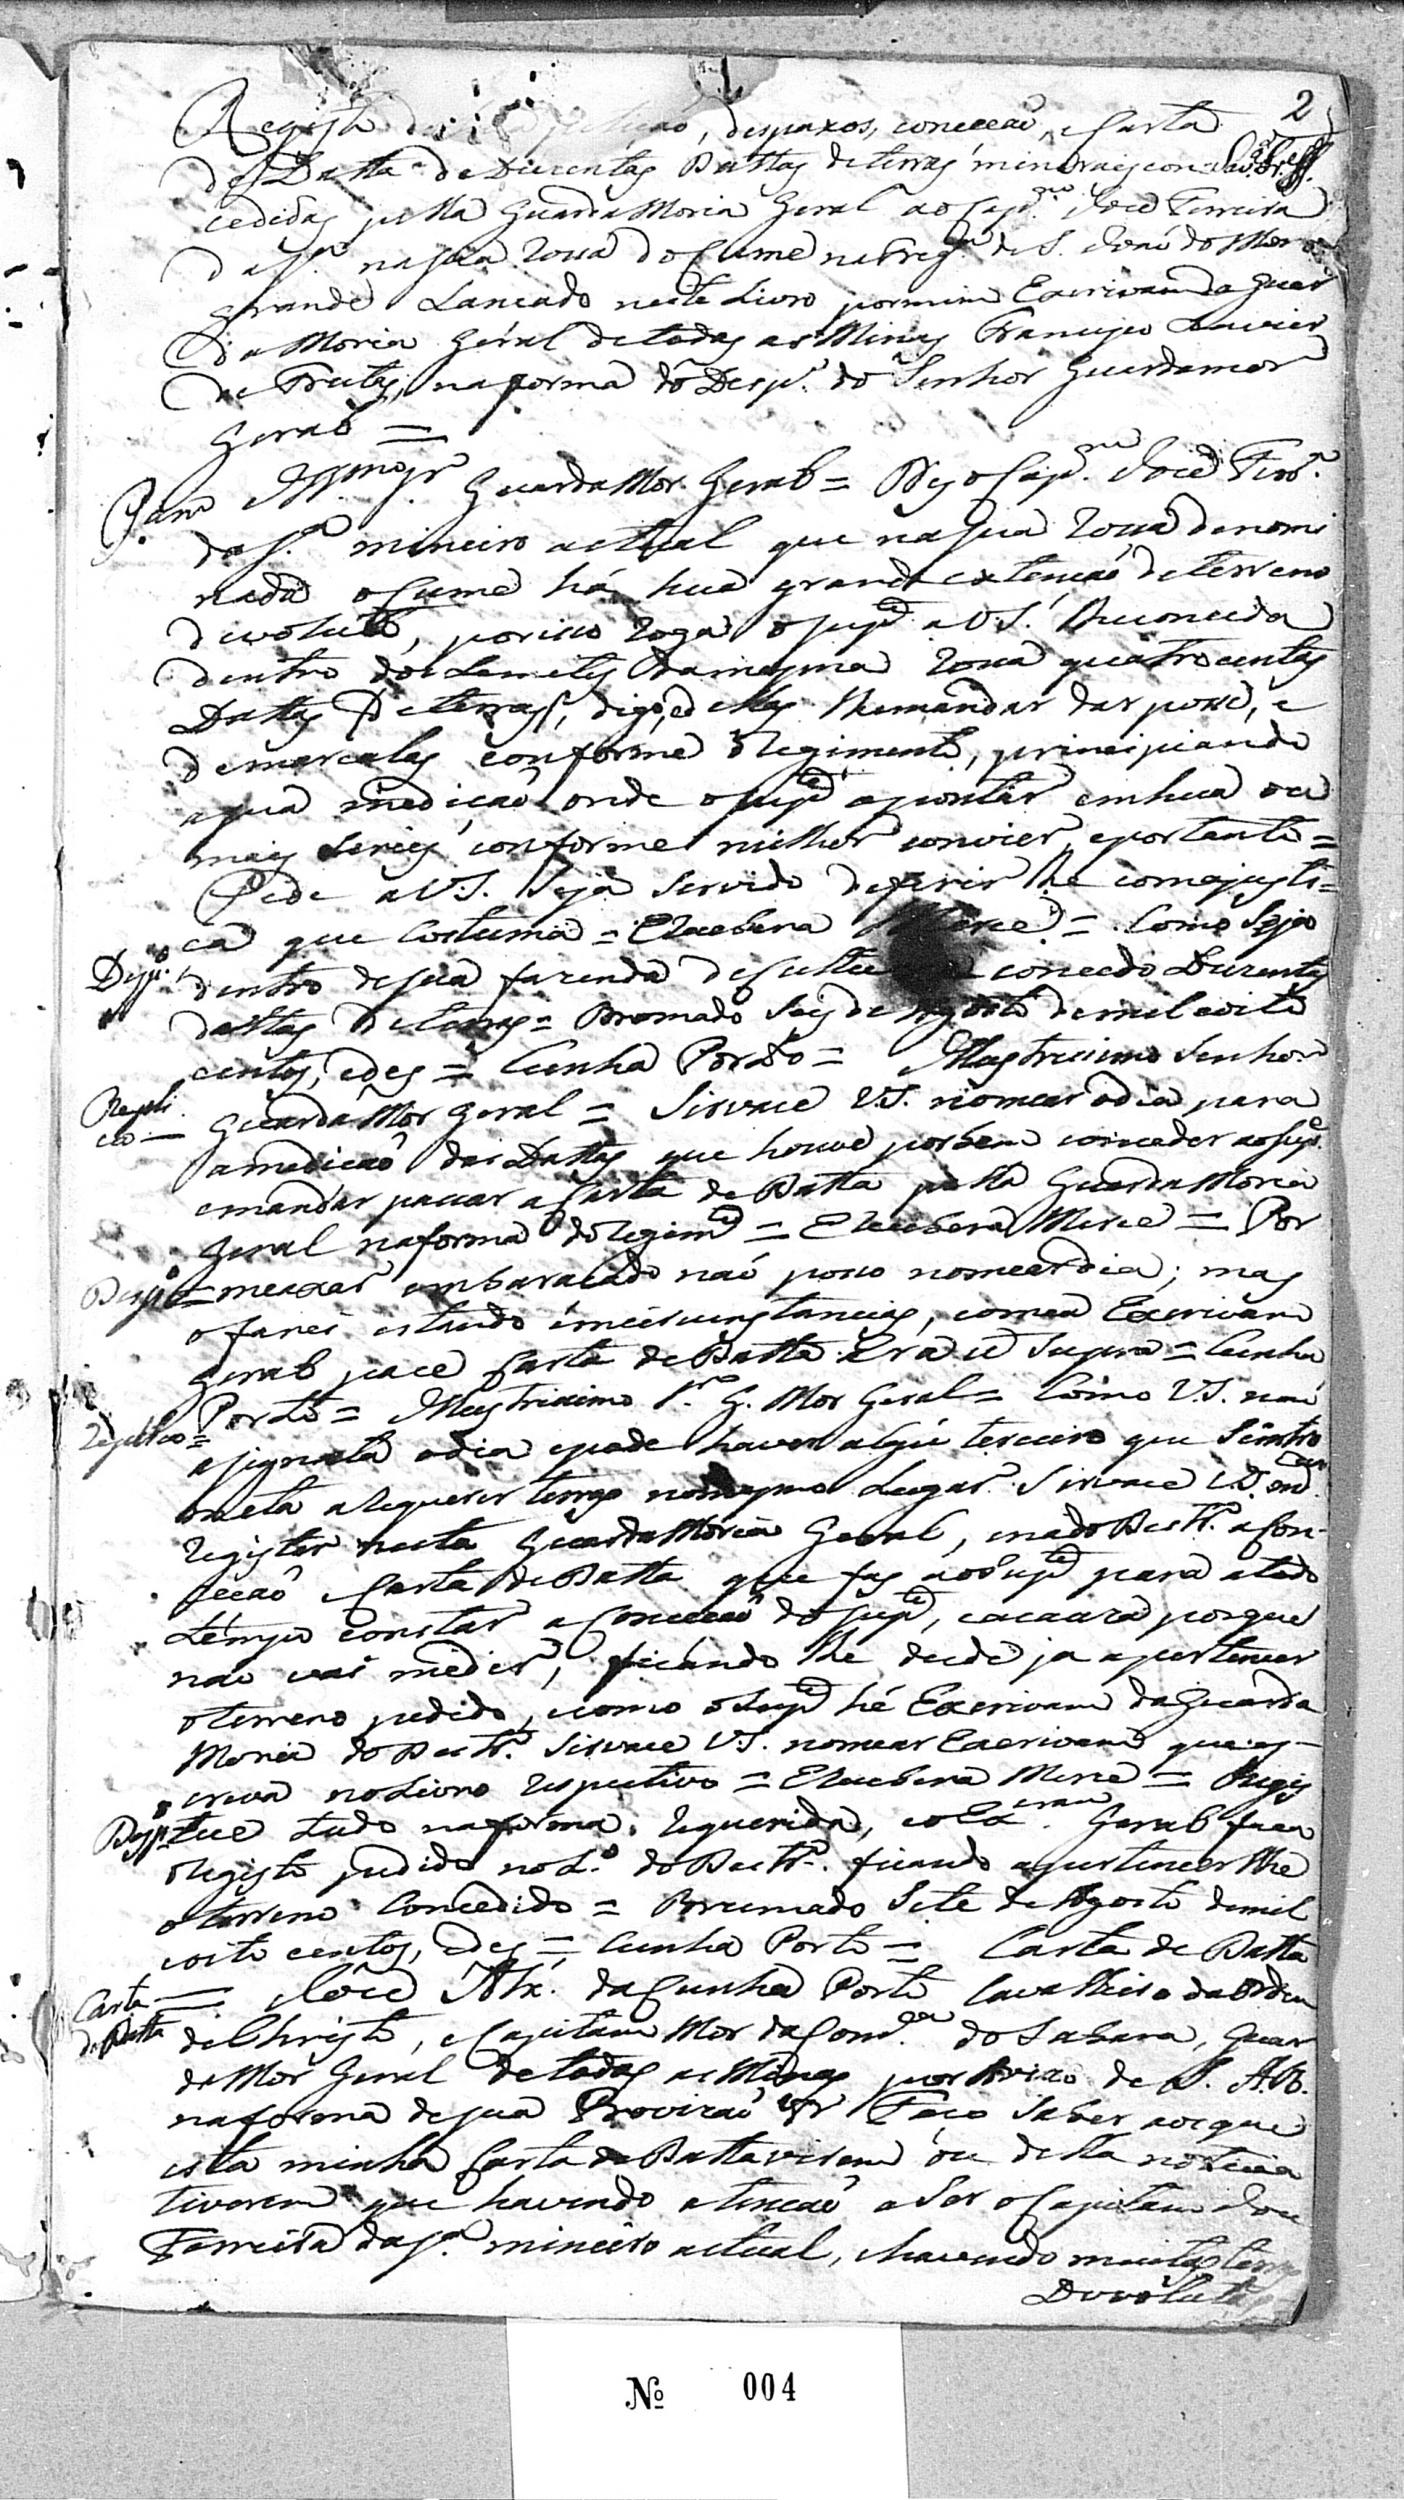 2
Registo de petição, despaxos, conceção, e Carta
de Datta de Duzentas Dattas de terras mineraes con-
cedidas pella Guarda Moria Geral ao Cap.am Joze Ferreira
da S.a na sua Rossa do Cume na Freg.a de S. João do Morro
grande Lancado neste Livro por mim Escrivam da Guar
da Moria Géral de todas as Minas Francisco Xavier
de Freitas, na forma do Desp.o do Senhor Guardamor
Geral =
P.am Guarda Mor Geral = Diz o Cap.am Joze Ferr.a
da S.a mineiro actual que na sua Rossa denomi
nada o Cume há hua grande extenção de terreno
devoluto, por isso roga o sup.te a V.S. lhe conceda
dentro dos Lemites da mesma Rossa quatrocentas
Dattas de terras, digo, e dellas lhe mandar dar posse, e
demarcalas conforme o Regimento, principiando
a sua medicão onde o sup.te apontar em hua ou
mais series conforme milhor convier, e portanto =
Pede a V.S. seja Servido deferir lhe com a justi=
ca que Costuma = E Recebera Merce = Como Seja
Desp.o
dentro de sua fazenda de Cultura concedo Duzentas
dattas de terras = Brumado Seis de Agosto de mil e oito
centos, e des = Cunha Porto = Illustrissimo Senhor
Repli
ca =
Guarda Mor Geral = Sirvace V.S. nomear o dia para
a medicaõ das Dattas que houve por bem conceder ao sup.e
e mandar passar a Carta de Datta pella Guarda Moria
Geral na forma do Regim.to = E Recebera Merce = Por
Desp.o =
me axar embaracado naõ posso nomear dia; mas
o farei estando em circunstancias, como a Escrivam
Geral pace Carta de Datta Era ut Supra = Cunha
Replica =
Porto = Illustrissimo S.r G. Mor Geral = Como V.S. naõ
asignala o dia e pode haver algũ terceiro que Sintro
meta a Requerer terras no mesmo Lugar Sirvace V.S. m.dar
Registar nesta Guarda Moria Geral, e na do Destr.o a Con-
cecaõ e Carta de Datta que fas ao Sup.te para a todo
tempo constar a Conceçaõ do sup.te, e a cauza porque
naõ vai medir, ficando lhe desde ja a pertencer
o terreno pedido, e como o Sup.te hé Escrivam da Guarda
Moria do Destr.o Sirvace V.S. nomear Escrivam que es-
creva no Livro respectivo = E Recebera Merce = Regis
Desp.o
tece tudo na forma Requerida, e o Escram Geral faca
o Registo pedido no L.o do Destr.o ficando a pertencer lhe
o terreno Concedido = Brumado Sete de Agosto de mil
e oito centos, e des = Cunha Porto = Carta de Datta
Carta
de Datta
= Joze Alz. da Cunha Porto Cavalleiro da Ordem
de Christo, e Capitam Mor da Com.ca do Sabara, Guar
da Mor Geral de todas as Minas por Avizo de S. A. R.
na forma de sua Provizaõ &r Faço Saber aos que
esta minha Carta de Datta virem ou della noticia
tiverem que havendo atençaõ a Ser o Capitam Joze
Ferreira da S.a mineiro actual, e havendo muitas terras
Devolutas
No 004